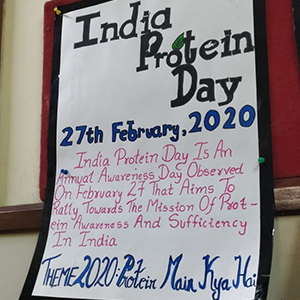 India
Protein
Day
27th February, 2020
India Protein Day Is An
Annual Awareness Day Observed
On February 27 That Aims To
Rally Towards The Mission Of Prot-
ein Awareness And Sufficiency
In India
THEME 2020: Protein Main Kya Hai